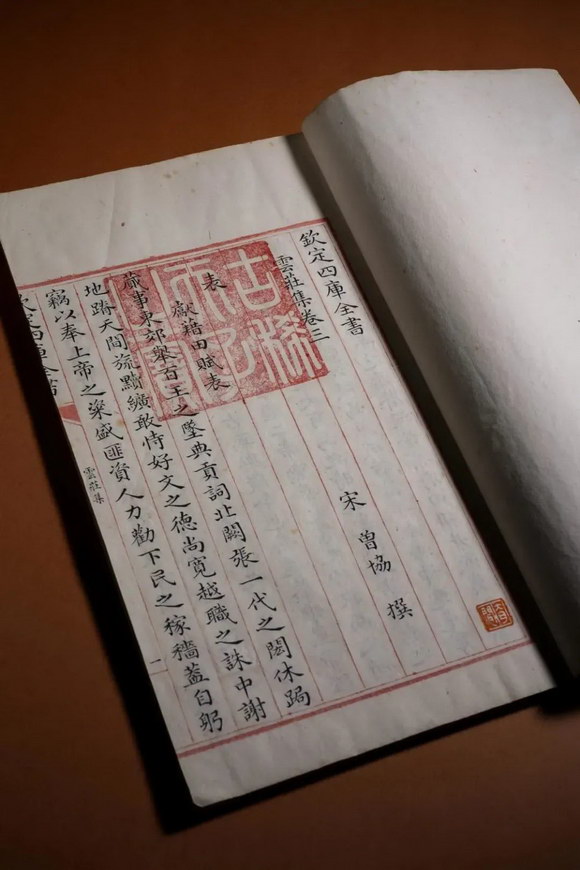 欽定四庫全書
雲莊集卷三
宋 曾協 撰
表
獻耤田賦表
蕆事東郊舉百王之墜典貢詞北闕張一代之閎休跼
地蹐天間旒黈纊敢恃好文之德尚寛越職之誅中謝
竊以奉上帝之粢盛匪資人力勸下民之稼穡蓋自躬
欽定四庫全書
雲莊集
一
古稀
天子